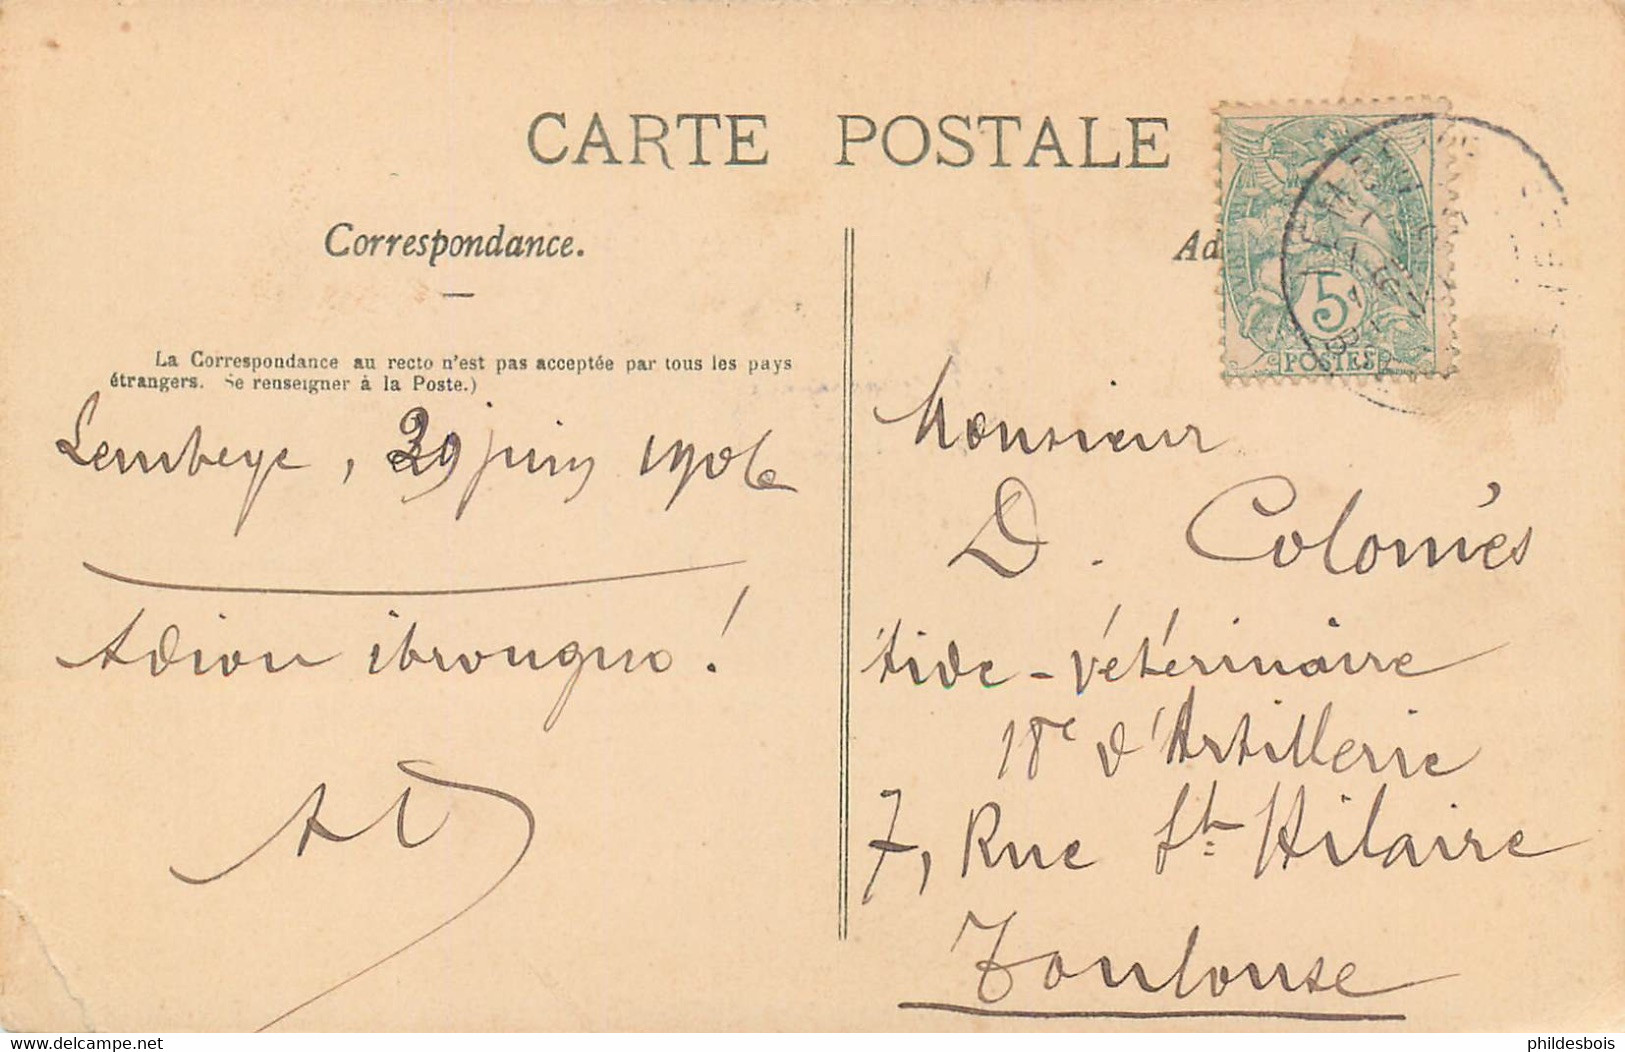 CARTE POSTALE
Correspondance.
La Correspondance au recto n'est pas acceptée par tous les pays
étrangers. Se renseigner à la Poste.)
Lembeye, 29 juin 1906
Adiou ibrougno !
Ad
5
POSTES
Monsieur
D. Colomiés
Aide-Vétérinaire
18e d'Artillerie
7, Rue St Hilaire
Toulouse
www.delcampe.net
phildesbois